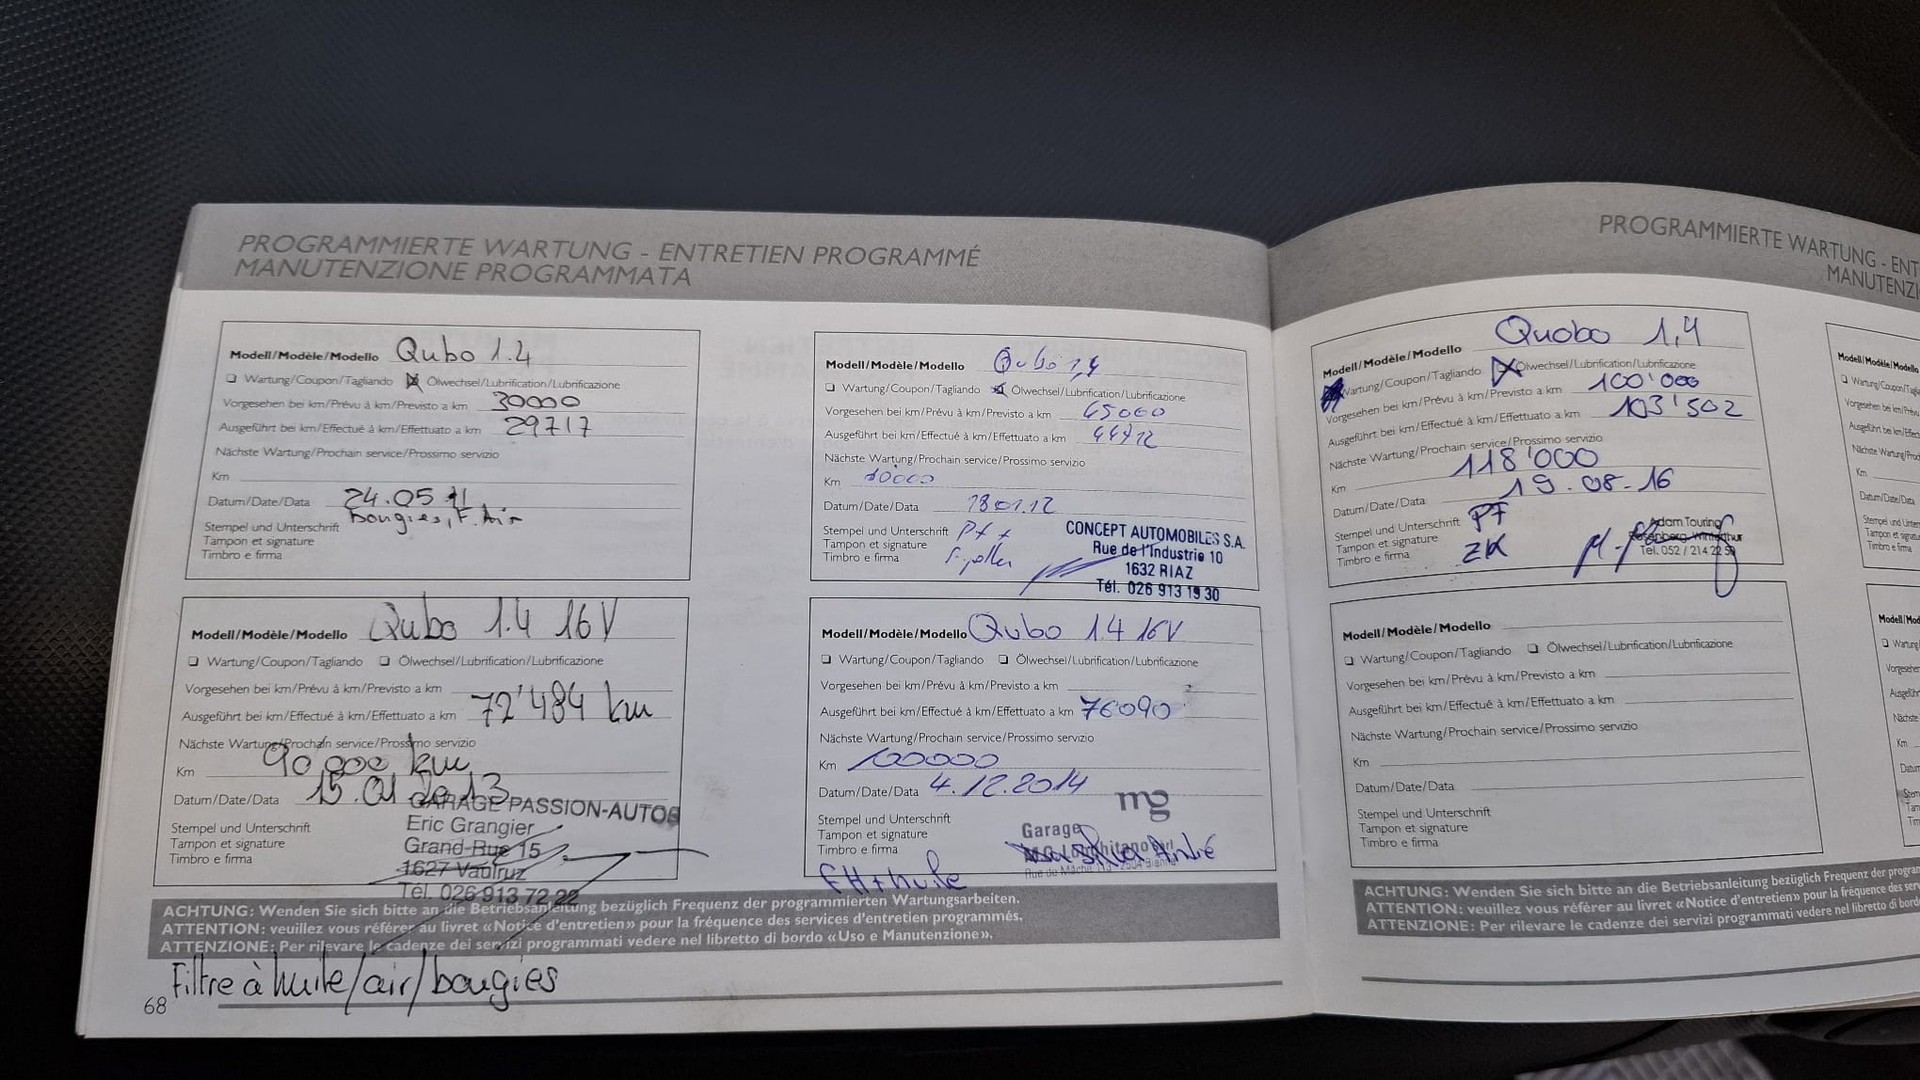 PROGRAMMIERTE WARTUNG - ENTRETIEN PROGRAMMÉ
MANUTENZIONE PROGRAMMATA
Modell/Modèle/Modello Qubo 1.4
Wartung/Coupon/Tagliando Ölwechsel/Lubrification/Lubrificazione
Vorgesehen bei km/Prévu à km/Previsto a km 30000
Ausgeführt bei km/Effectué à km/Effettuato a km 29717
Nächste Wartung/Prochain service/Prossimo servizio
Km
Datum/Date/Data 24.05 11
bougies, F. Air
Stempel und Unterschrift
Tampon et signature
Timbro e firma
Modell/Modèle/Modello Qubo 1,4
Wartung/Coupon/Tagliando Ölwechsel/Lubrification/Lubrificazione
Vorgesehen bei km/Prévu à km/Previsto a km
Ausgeführt bei km/Effectué à km/Effettuato a km
Nächste Wartung/Prochain service/Prossimo servizio
Km
Datum/Date/Data
Stempel und Unterschrift
Tampon et signature
Timbro e firma
CONCEPT AUTOMOBILES S.A.
Rue de l'Industrie 10
1632 RIAZ
Tél. 026 913 19 30
Modell/Modèle/Modello Qubo 1.4 16V
Wartung/Coupon/Tagliando Ölwechsel/Lubrification/Lubrificazione
Vorgesehen bei km/Prévu à km/Previsto a km
Ausgeführt bei km/Effectué à km/Effettuato a km 72'484 km
Nächste Wartung/Prochain service/Prossimo servizio
Km 90 000 km
Datum/Date/Data 15.01 2013
Stempel und Unterschrift
Tampon et signature
Timbro e firma
GARAGE PASSION-AUTOS
Eric Grangier
Grand-Rue 15
1627 Vaulruz
Tél. 026 913 72 22
Modell/Modèle/Modello Qubo 1.4 16V
Wartung/Coupon/Tagliando Ölwechsel/Lubrification/Lubrificazione
Vorgesehen bei km/Prévu à km/Previsto a km
Ausgeführt bei km/Effectué à km/Effettuato a km 76090
Nächste Wartung/Prochain service/Prossimo servizio
Km 100000
Datum/Date/Data 4.12.2014
Stempel und Unterschrift
Tampon et signature
Timbro e firma
mg
Garage
FH + huile
ACHTUNG: Wenden Sie sich bitte an die Betriebsanleitung bezüglich Frequenz der programmierten Wartungsarbeiten.
ATTENTION: veuillez vous référer au livret «Notice d'entretien» pour la fréquence des services d'entretien programmés.
ATTENZIONE: Per rilevare le cadenze dei servizi programmati vedere nel libretto di bordo «Uso e Manutenzione».
Filtre à huile/air/bougies
68
PROGRAMMIERTE WARTUNG - ENT
MANUTENZI
Modell/Modèle/Modello Quobo 1,4
Wartung/Coupon/Tagliando Ölwechsel/Lubrification/Lubrificazione
Vorgesehen bei km/Prévu à km/Previsto a km 100'000
Ausgeführt bei km/Effectué à km/Effettuato a km 103'502
Nächste Wartung/Prochain service/Prossimo servizio
Km 118'000
Datum/Date/Data 19.08.16
Stempel und Unterschrift PF
Tampon et signature
Timbro e firma ZK
Adam Touring
Tel. 052 / 214 22 50
Modell/Modèle/Modello
Wartung/Coupon/Tagliando Ölwechsel/Lubrification/Lubrificazione
Vorgesehen bei km/Prévu à km/Previsto a km
Ausgeführt bei km/Effectué à km/Effettuato a km
Nächste Wartung/Prochain service/Prossimo servizio
Km
Datum/Date/Data
Stempel und Unterschrift
Tampon et signature
Timbro e firma
ACHTUNG: Wenden Sie sich bitte an die Betriebsanleitung bezüglich Frequenz der progra
ATTENTION: veuillez vous référer au livret «Notice d'entretien» pour la fréquence des ser
ATTENZIONE: Per rilevare le cadenze dei servizi programmati vedere nel libretto di bord